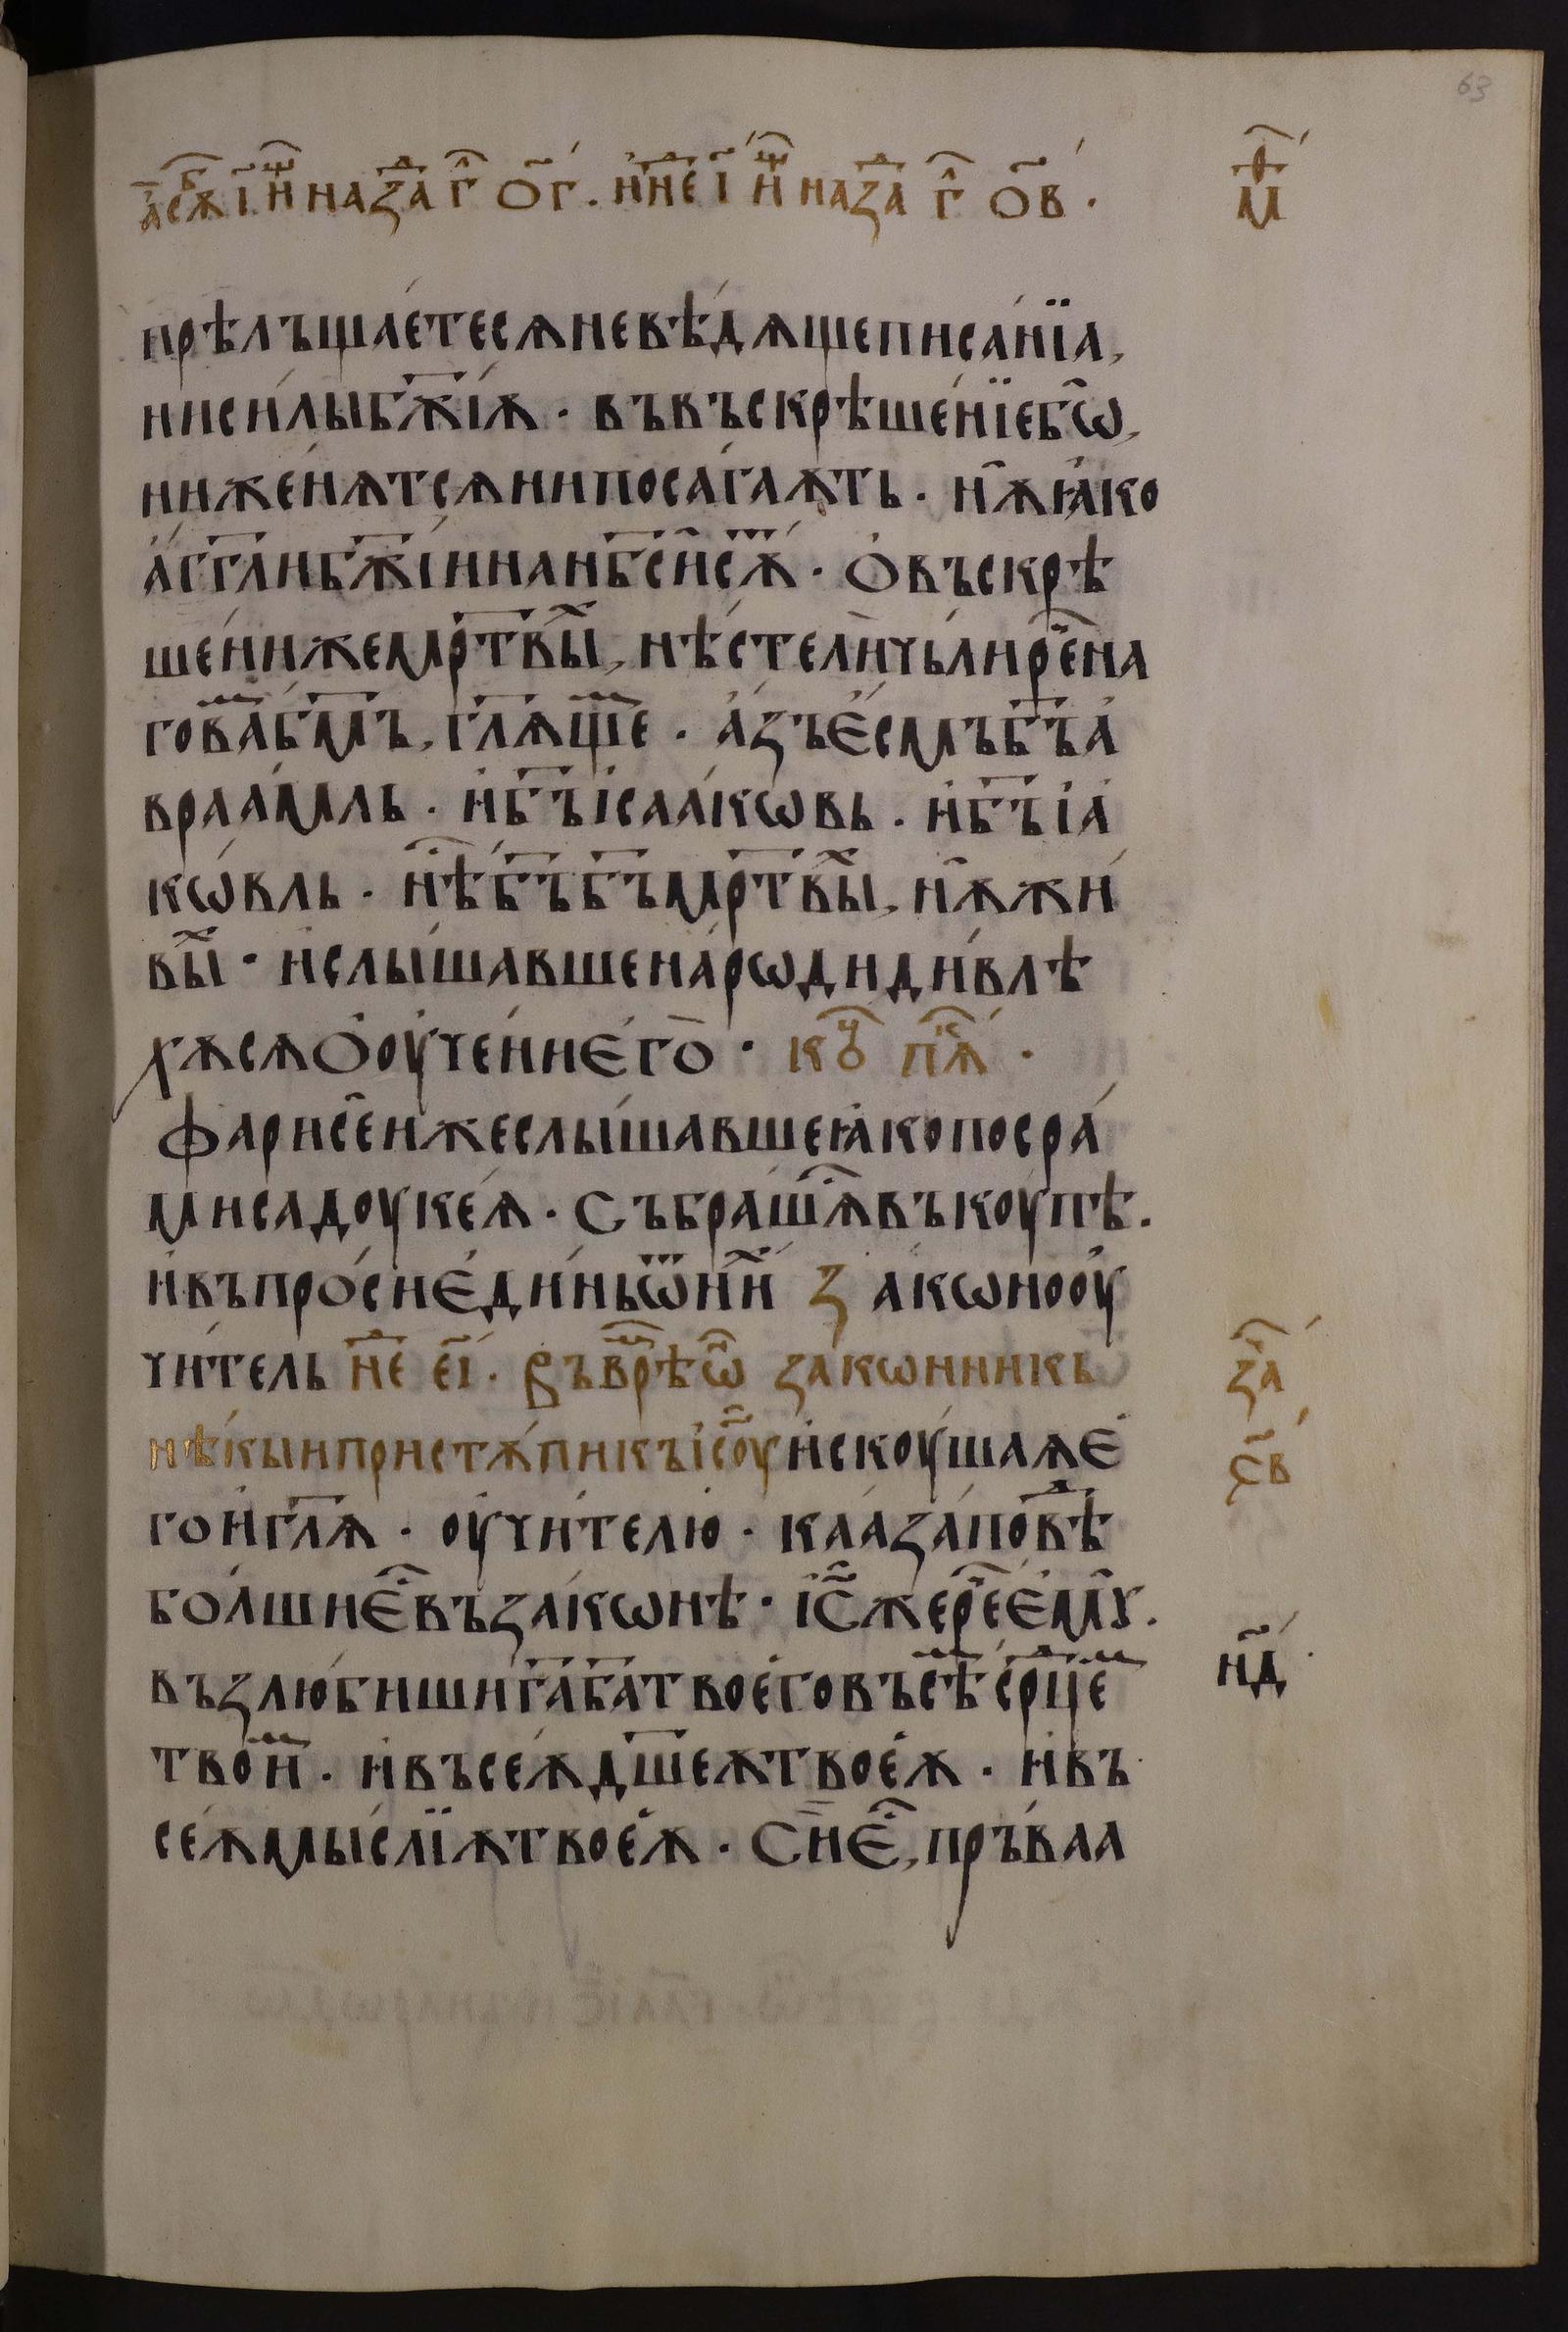 63
сѫⷠ҇ і҃ н҃ⷲ҇ назаⷣ г҇ о҃г. нⷣе і҃ н҃ⷲ҇ назаⷣ г҇ о҃в ·
мⷴ҇
прѣлъщаетесѧ невѣдѧще писанїа,
ни силы бж҃іѧ · въ въскрѣшенїе бѡ҇,
ни женѧтсѧ ни посагаѫть · нѫ҇ ꙗко
агг҃ли бж҃іи на нб҃си сѫⷮ · О въскрѣ
шени же мр҃твыⷯ, нѣсте ли чьли реⷱ҇на
го ваⷨ б҃мъ, гл҃ѧщеⷨ · азъ есмъ б҃ъ а
враамль · и б҃ъ ісааковь · и б҃ъ іа
кѡвль · нѣⷭ҇ б҃ъ б҃ъ мр҃твыⷯ, нѫ҇ жи
выⷯ · и слышавше нарѡди дивлѣ
хѫсѧ о оучени его · коⷰ҇ꙋ пѧⷦ҇ ·
Фарисеи же слышавше ꙗко посра
ми садоукеѧ · събрашѧⷭ҇ въкоупѣ.
и въпроси единь ѿ ниⷯ законооу
читель нⷣе е҃і · Въ вреⷨ҇ ѡⷩ҇ законникь
нѣкыи пристѫпи къ іс҃оу искоушаѫ е
го и гл҃ѧ · оучителю · каа заповѣⷣ
болши еⷭ҇ въ законѣ · іс҃ же реⷱ҇ емꙋ.
възлюбиши г҃а б҃а твоего въсѣⷨ срⷣцеⷨ
твоиⷨ · и въсеѧ дш҃еѫ твоеѫ · и въ
сеѫ мыслїѫ твоеѫ · Си еⷭ҇, пръваа
заⷱ҇
с҃в
н҃д